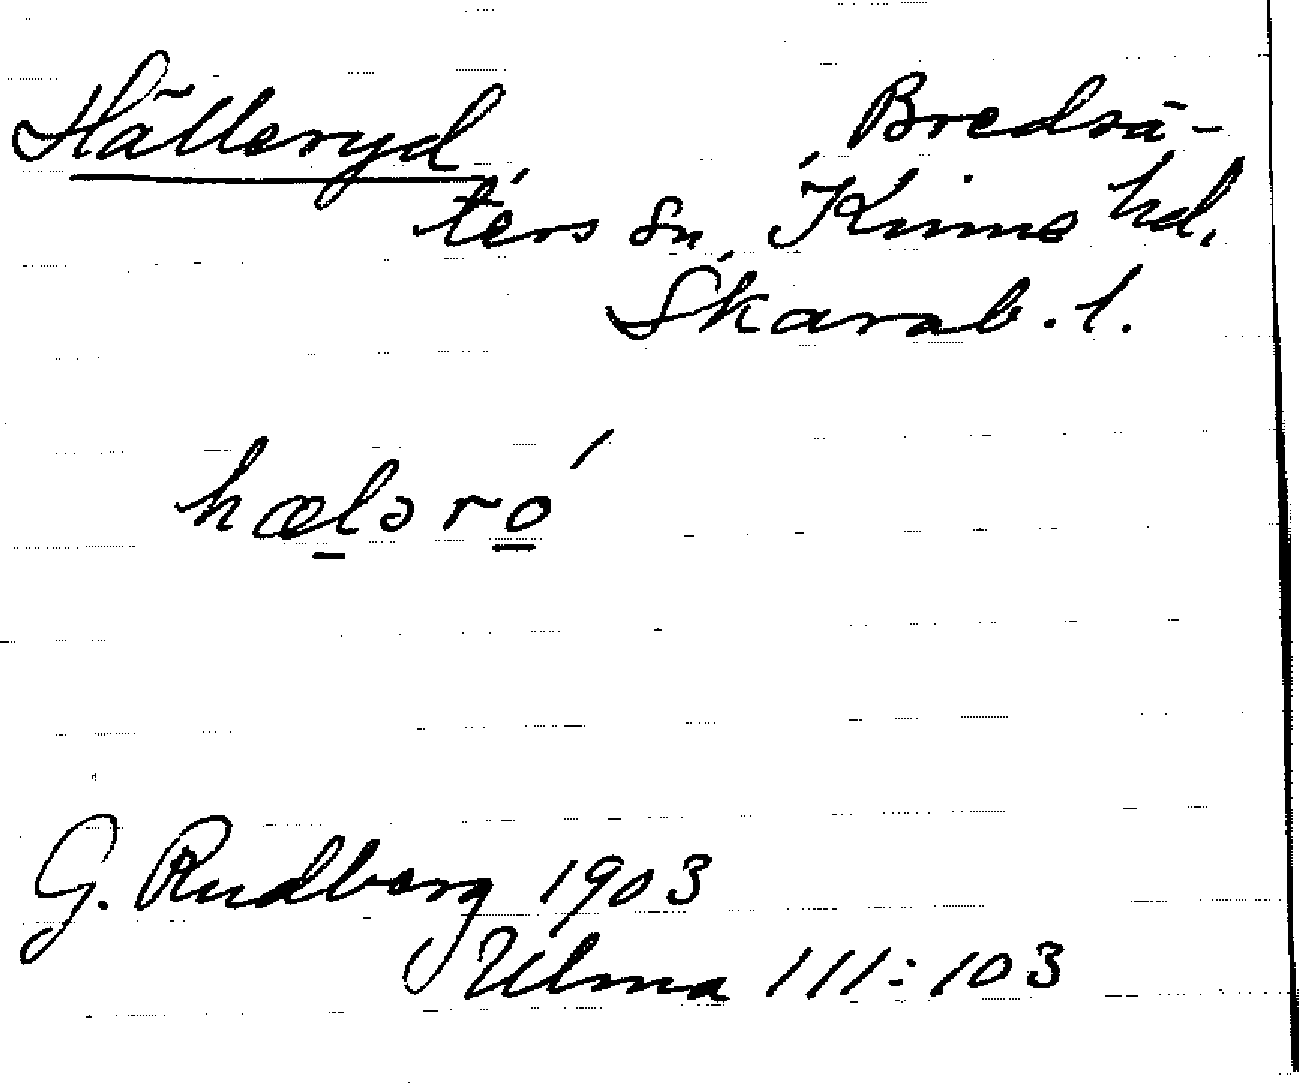 Hälleryd Bredsä-
ters sn, Kinne hd.
Skarab. l.
hælə ró
G. Rudberg 1903
Ulma 111:103